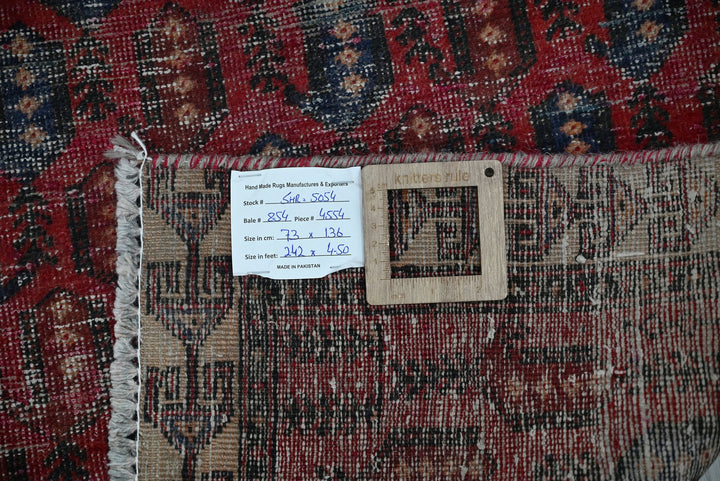 Hand Made Rugs Manufactures & Exporters
Stock # SHR = 5054
Bale # 854 Piece # 4554
Size in cm: 73 x 136
Size in feet: 242 x 4.50
MADE IN PAKISTAN
knitters rule